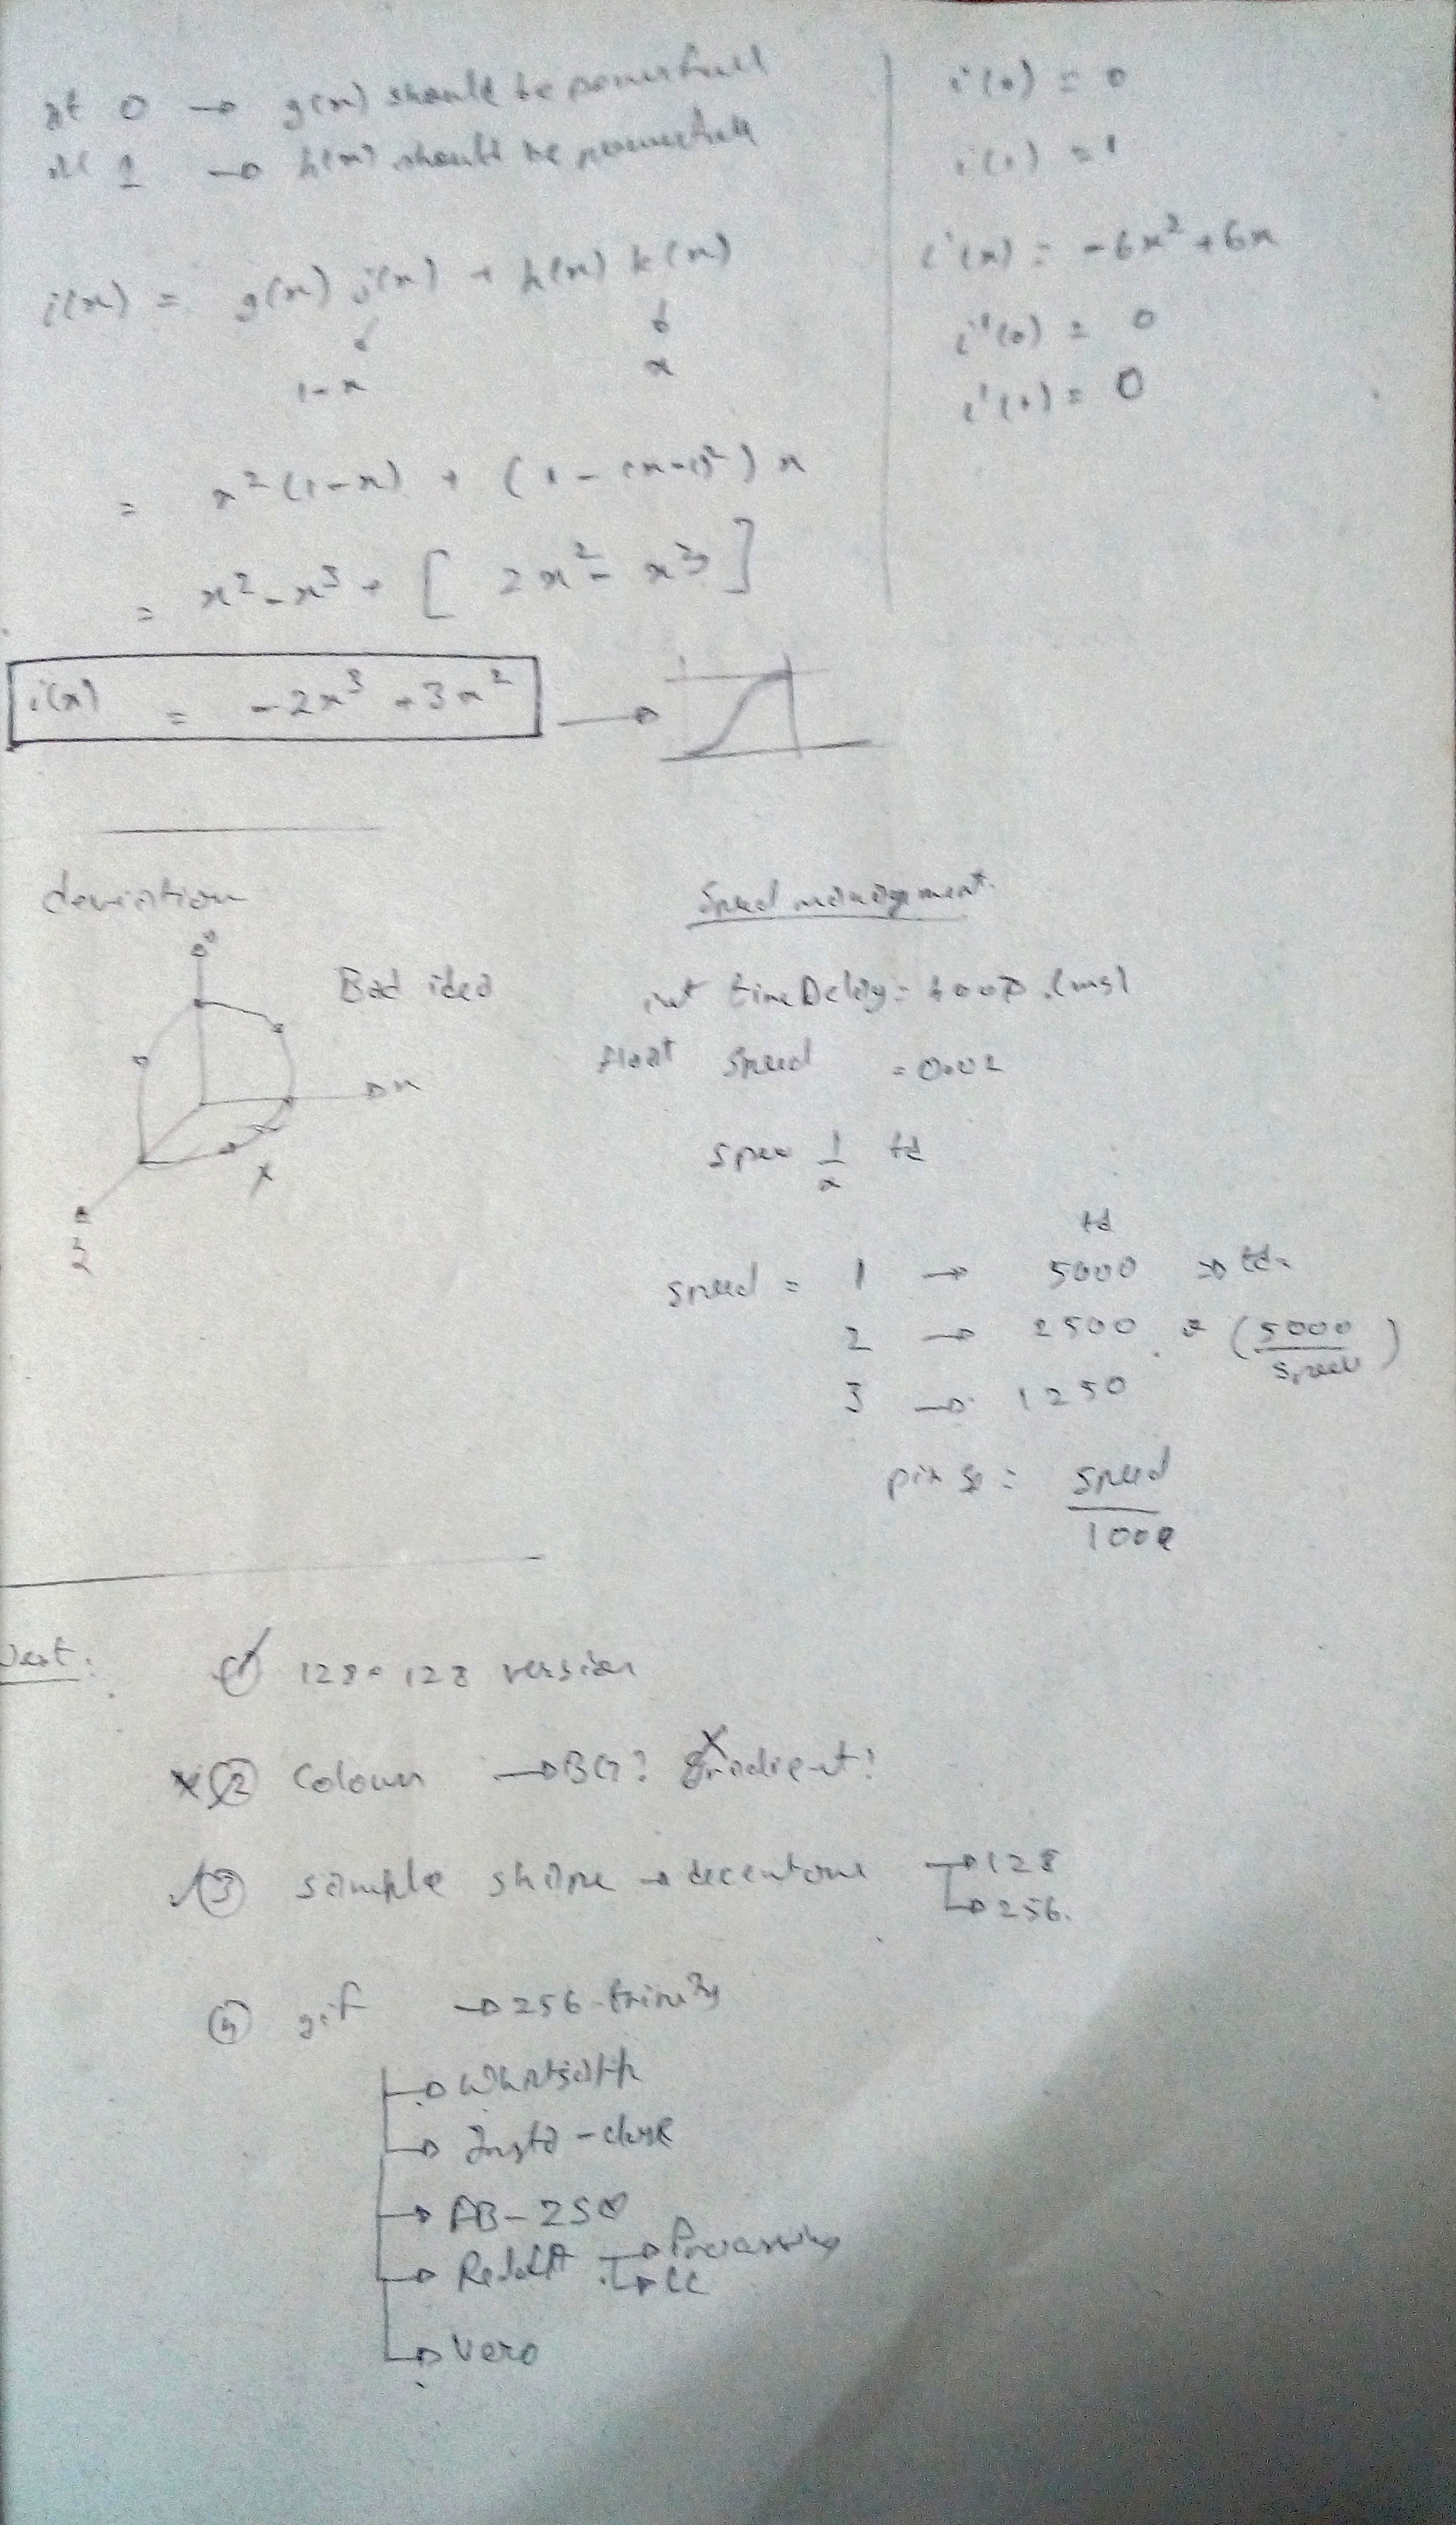 at 0 → g(x) should be powerfull
at 1 → h(x) should be powerfull
i(x) = g(x) j(x) + h(x) k(x)
1-x
x
= x²(1-x) + (1-(x-1)²) x
= x²-x³ + [2x² - x³]
i(x) = -2x³ +3x²
i(0) = 0
i(1) = 1
i'(x) = -6x² +6x
i'(0) = 0
i'(1) = 0
deviation
Bad idea
x
x
z
Speed management.
int timeDelay = (ms)
float speed = 0.02
1
α
td
td
speed = 1 → 5000 ⇒ td =
2 → 2500 (5000
speed)
3 → 1250
speed
1000
Next:
① 128 × 128 version
x ② Colour → BG? Gradient?
③ sample shape → → 128
→ 256.
④ gif → 256 - trinity
→ Whatsapp
→ Insta -
→ AB - 250
→ Reddit → Processing
→ CC
→ Vero